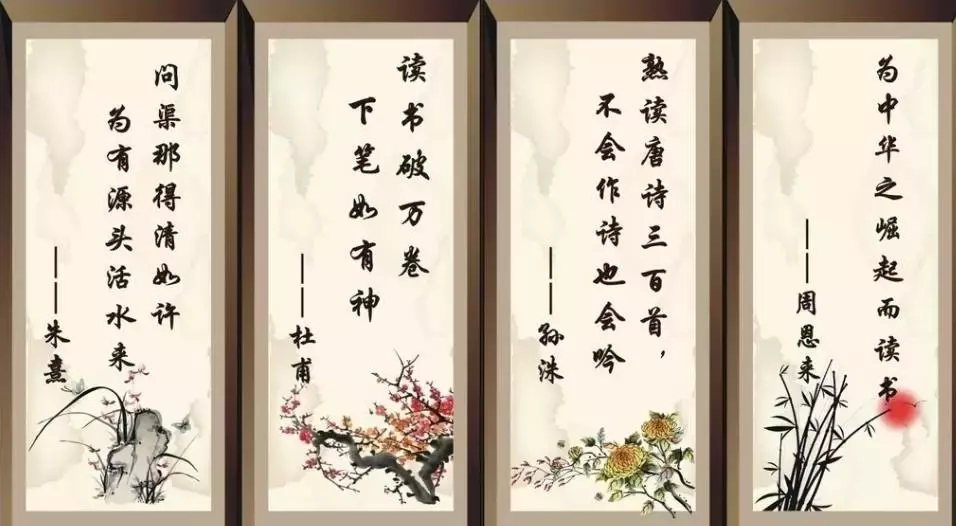 问渠那得清如许
为有源头活水来
——朱熹
读书破万卷
下笔如有神
——杜甫
熟读唐诗三百首，
不会作诗也会吟
——孙洙
为中华之崛起而读书
——周恩来